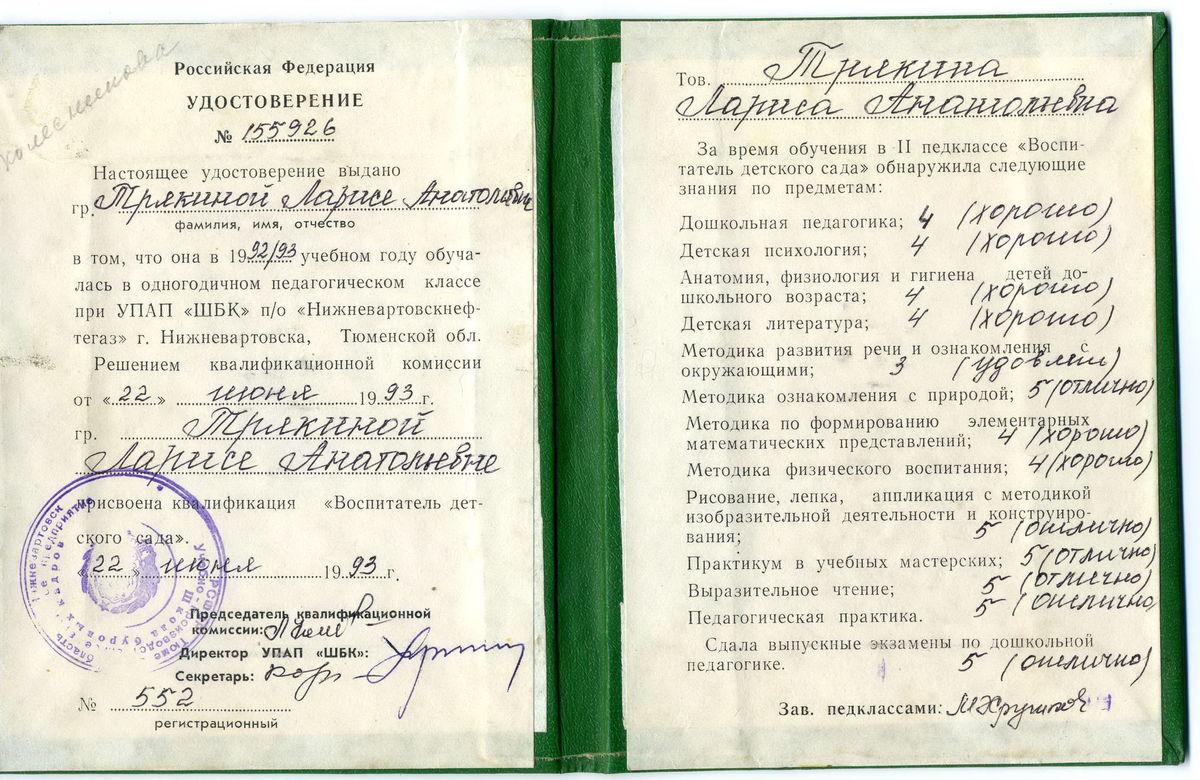 Колесникова
Российская Федерация
УДОСТОВЕРЕНИЕ
№ 155926
Настоящее удостоверение выдано
гр. Трякиной Ларисе Анатольевне
фамилия, имя, отчество
в том, что она в 1992/93 учебном году обуча-
лась в одногодичном педагогическом классе
при УПАП «ШБК» п/о «Нижневартовскнеф-
тегаз» г. Нижневартовска, Тюменской обл.
Решением квалификационной комиссии
от «22» июня 1993 г.
гр. Трякиной
Ларисе Анатольевне
присвоена квалификация «Воспитатель дет-
ского сада».
22 » июня 1993 г.
Председатель квалификационной
комиссии:
Директор УПАП «ШБК»:
Секретарь:
№ 552
регистрационный
Тов. Трякина
Лариса Анатольевна
За время обучения в II педклассе «Воспи-
татель детского сада» обнаружила следующие
знания по предметам:
Дошкольная педагогика; 4 (хорошо)
Детская психология; 4 (хорошо)
Анатомия, физиология и гигиена детей до-
школьного возраста; 4 (хорошо)
Детская литература; 4 (хорошо)
Методика развития речи и ознакомления с
окружающими; 3 (удовлет)
Методика ознакомления с природой; 5 (отлично)
Методика по формированию элементарных
математических представлений; 4 (хорошо)
Методика физического воспитания; 4 (хорошо)
Рисование, лепка, аппликация с методикой
изобразительной деятельности и конструиро-
вания; 5 (отлично)
Практикум в учебных мастерских; 5 (отлично)
Выразительное чтение; 5 (отлично)
Педагогическая практика. 5 (отлично)
Сдала выпускные экзамены по дошкольной
педагогике. 5 (отлично)
Зав. педклассами: